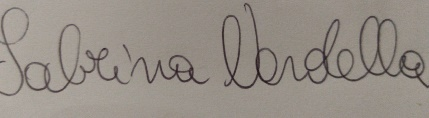 Sabrina Verdella